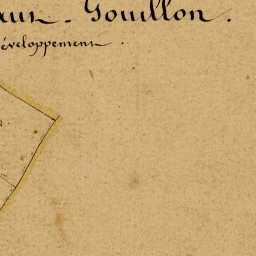 Gouillon.
éveloppement.